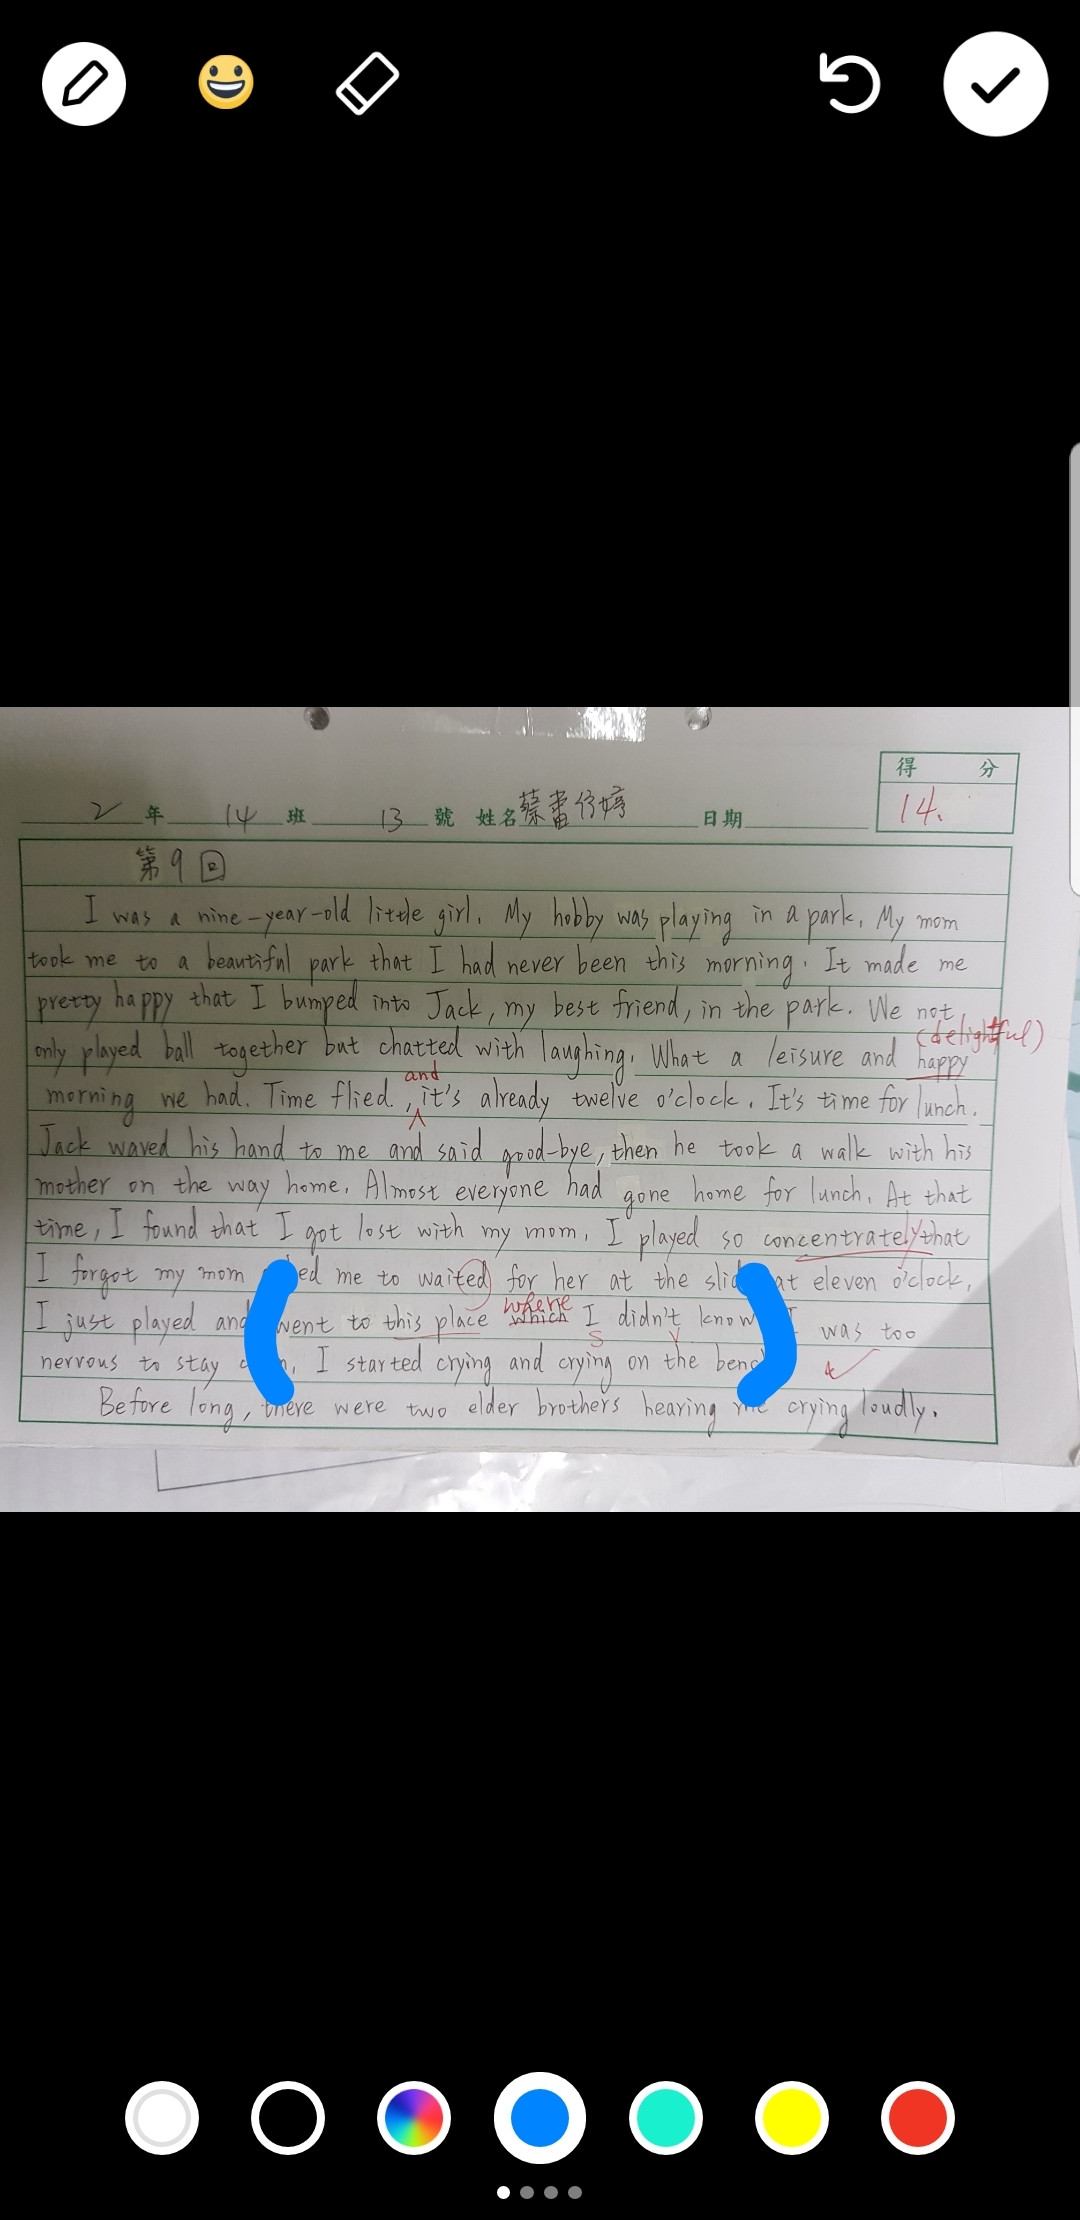 得 分
14.
2 年 14 班 13 號 姓名 蔡 婷 日期
第9回
I was a nine-year-old little girl. My hobby was playing in a park. My mom
took me to a beautiful park that I had never been this morning. It made me
pretty happy that I bumped into Jack, my best friend, in the park. We not
(delightful)
only played ball together but chatted with laughing. What a leisure and happy
and
morning we had. Time flied. , it's already twelve o'clock. It's time for lunch.
Jack waved his hand to me and said good-bye, then he took a walk with his
mother on the way home. Almost everyone had gone home for lunch. At that
time, I found that I got lost with my mom. I played so concentrately that
I forgot my mom me to waited for her at the at eleven o'clock,
where
I just played and went to this place which I didn't know I was too
S V
nervous to stay I started crying and crying on the
Before long, there were two elder brothers hearing me crying loudly.